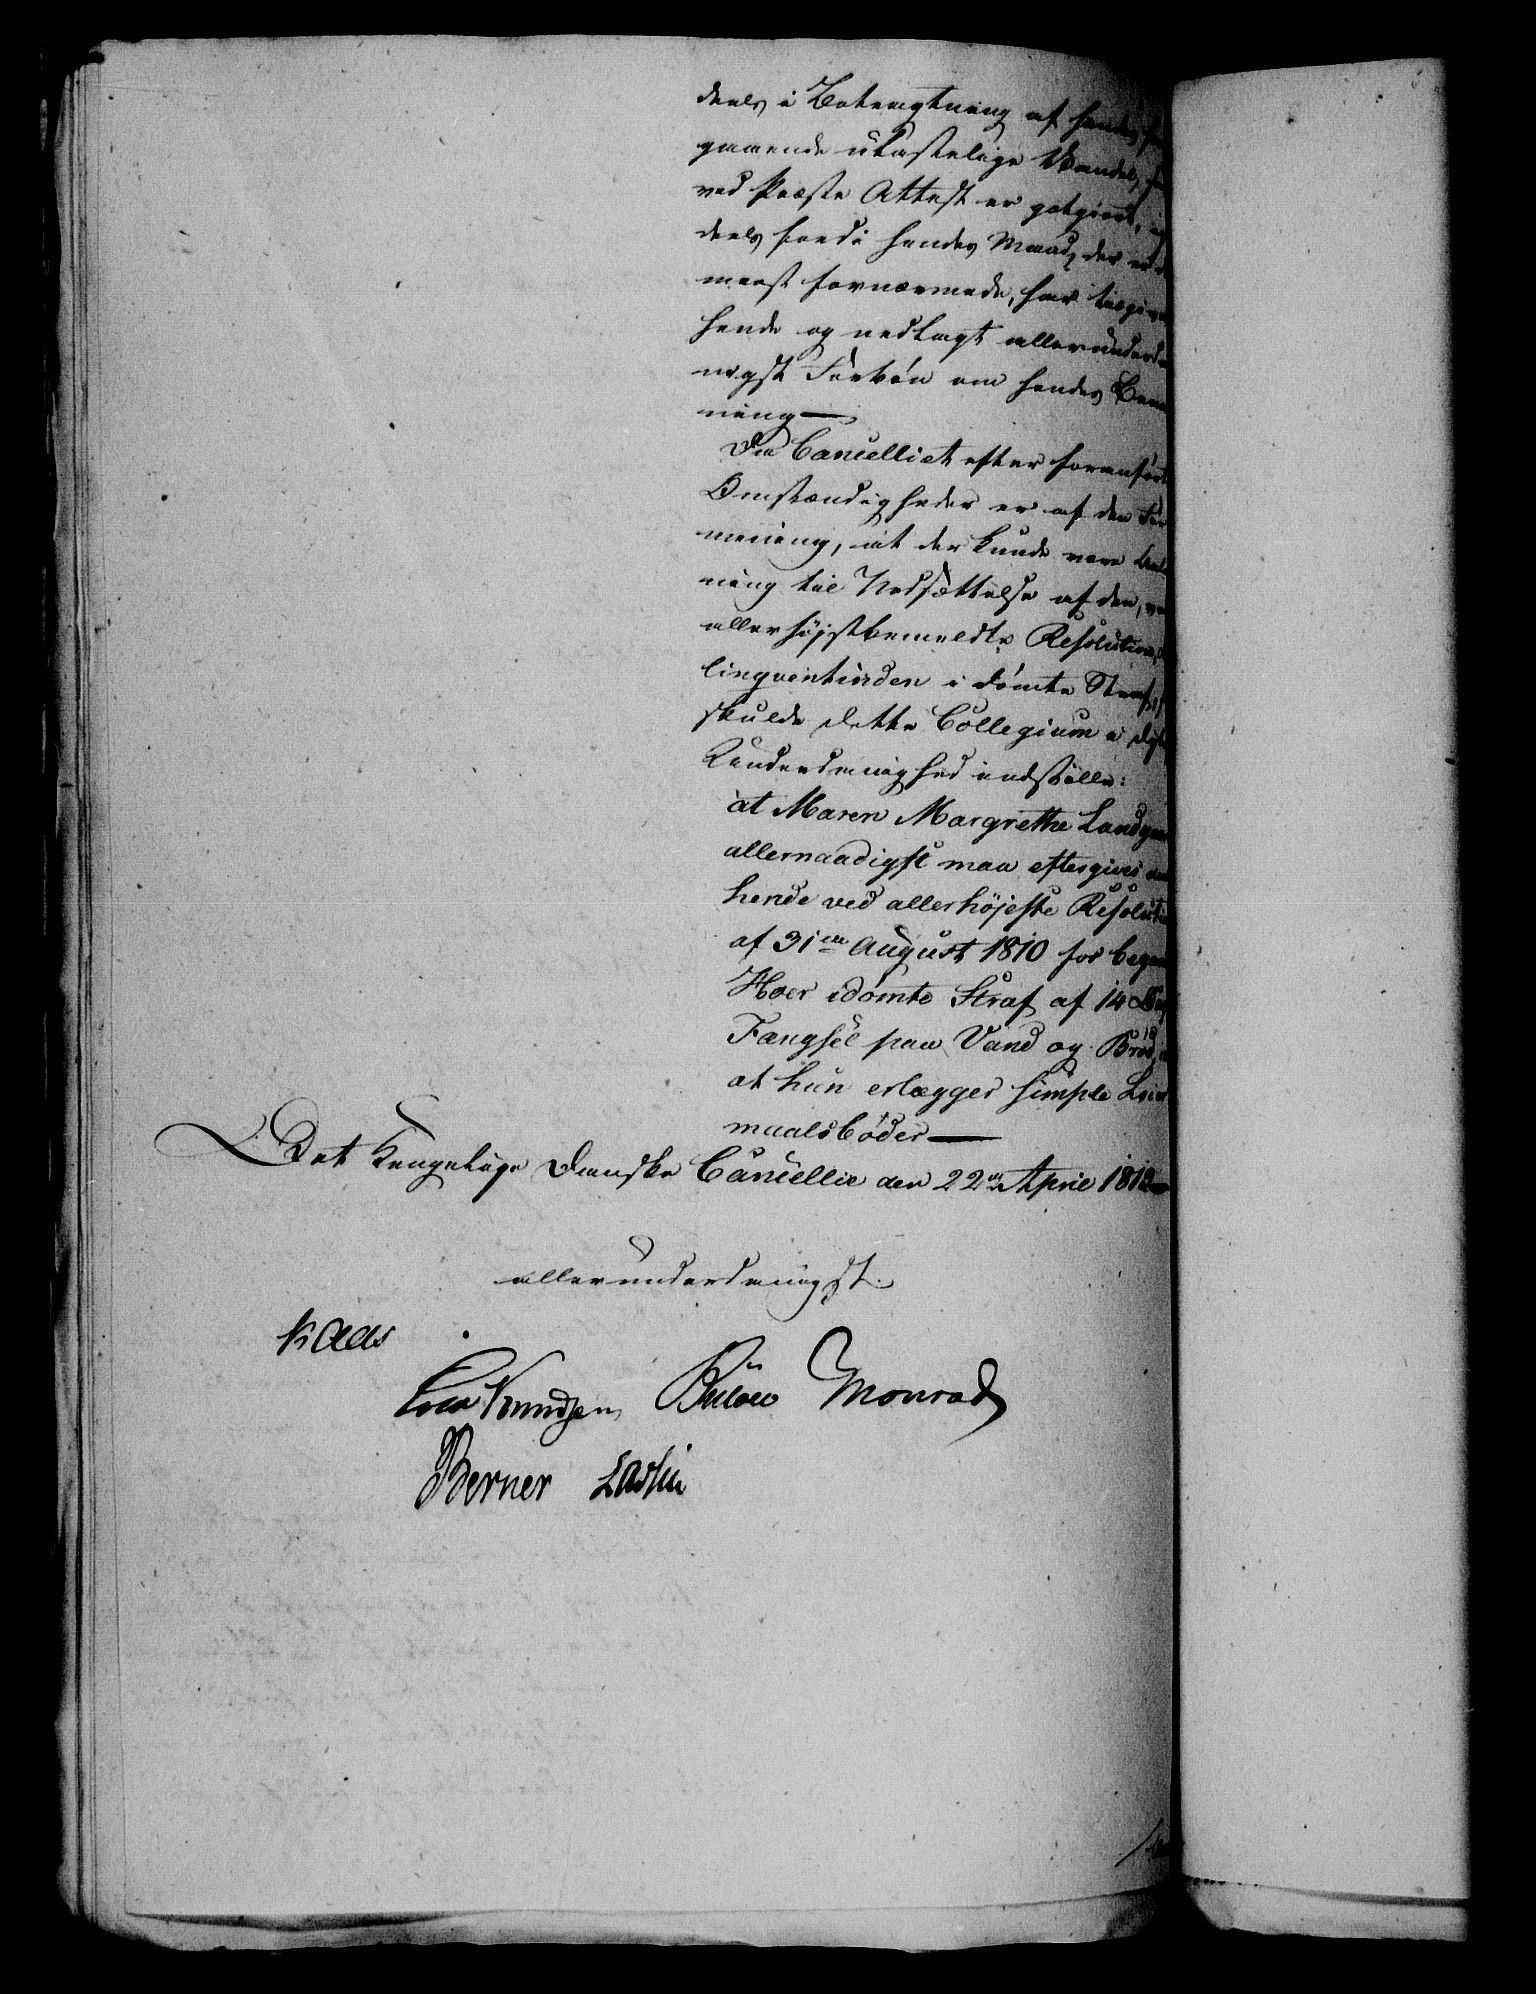 deels i Betragtning af hendes
gaaende ulastelige Vandel,
ved Præste Attest er godgiort,
deels fordi hendes Mand, der er
meest fornærmede, har tilgivet
hende og nedlagt allerunderda
nigst Forbøn om hendes Benaad
ning —
Da Cancelliet efter foranførte
Omstændigheder er af den For
mening, at der kunde være Anled
ning til Nedsættelse af den, ved
allerhøjstbemeldte Resolution,
linqventinden i dømte Straf,
skulde dette Collegium i dyb
Underdanighed indstille:
at Maren Margrethe Landg
allernaadigst maa eftergives den
hende ved allerhøjeste Resolution
af 31te August 1810 for begaaet
Hoer idømte Straf af 14 Dages
Fængsel paa Vand og Brød,
at hun erlægger simple Leier
maalsbøder —
Det Kongelige Danske Cancellie den 22de April 1812
allerunderdanigst
Kaas
Knudsen Bülow Monrad
Berner Lassen